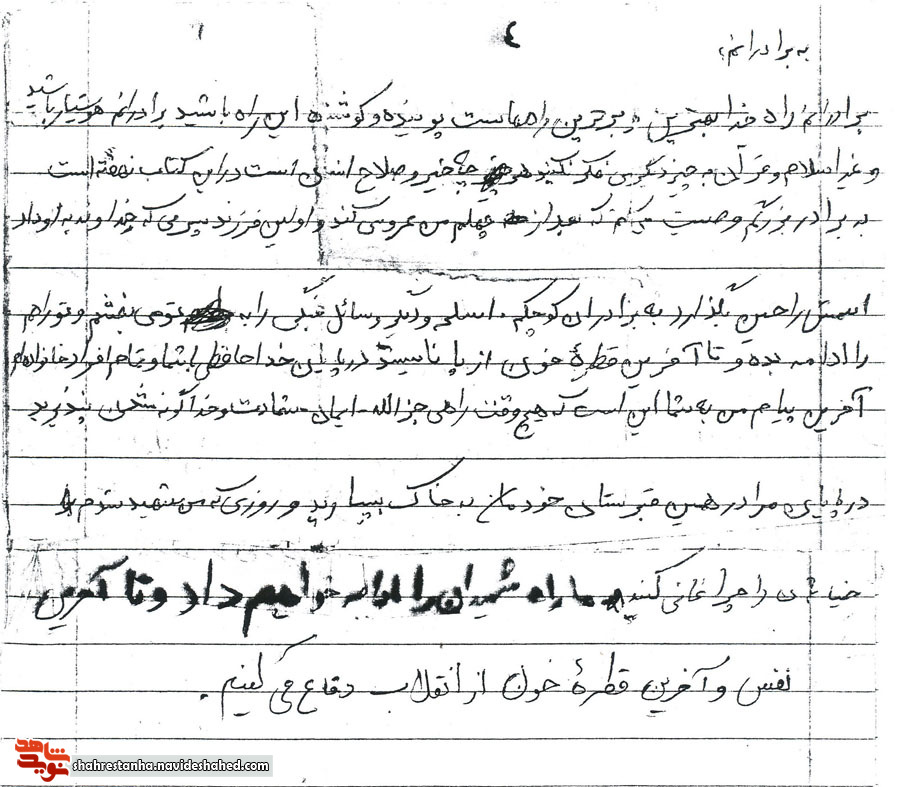 ۴
به برادرانم،
برادرانم راه خدا بهترین و برترین راههاست پوینده و کوشنده این راه باشید برادرانم هوشیار باشید
و غیر اسلام و قرآن به چیز دیگری فکر نکنید هر چه خیر و صلاح انسانی است در این کتاب نهفته است
به برادر بزرگم وصیت میکنم که بعد از چهلم من عروسی کند و اولین فرزند پسرمی که خداوند به او داد
اسمش را حسین بگذارد به برادران کوچکم. اسلحه و دیگر وسائل جنگی را به تو می بخشم و تو راهم
را ادامه بده و تا آخرین قطرهٔ خون از پا نایست در پایان خداحافظی با شما و تمام افراد خانواده ام
آخرین پیام من به شما این است که هیچ وقت راهی جز الله - ایمان - شهادت و خداگونه شدن نپذیرید
در پایان مرا در همین قبرستان خودمان به خاک بسپارید و روزی که من شهید شدم
خیابان را چراغانی کنید ما راه شهیدان را ادامه خواهیم داد و تا آخرین
نفس و آخرین قطرهٔ خون از انقلاب دفاع می کنیم.
شاهد
نوید
shahrestanha.navideshahed.com